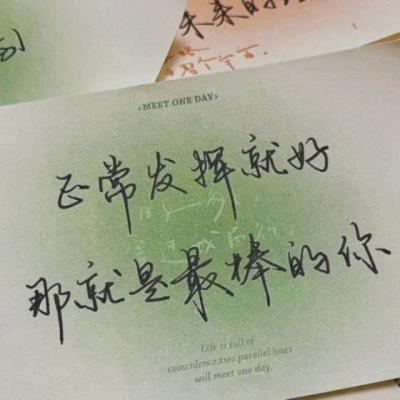 未来的
<MEET ONE DAY>
正常发挥就好
那就是最棒的你
Life is full of
coincidence,two parallel lines
will meet one day.